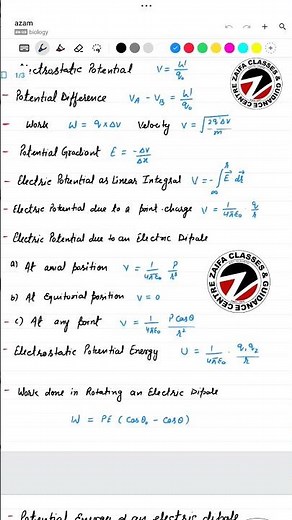 azam
biology
1/3
Electrostatic Potential V = W/q₀
- Potential Difference V_A - V_B = W/q₀
- Work W = q x ΔV Velocity V = √(2qΔV/m)
- Potential Gradient E = -ΔV/Δx
- Electric Potential as Linear Integral V = -∫_∞^r E⃗ dr⃗
- Electric Potential due to a point charge V = 1/4πε₀ · q/r
- Electric Potential due to an Electric Dipole
a) At axial position V = 1/4πε₀ P/r²
b) At Equitorial position V = 0
- c) At any point V = 1/4πε₀ P cosθ/r²
- Electrostatic Potential Energy U = 1/4πε₀ · q₁q₂/r
- Work done in Rotating an Electric Dipole
W = PE (cosθ₀ - cosθ)
- Potential Energy of an electric dipole
ZAIFA CLASSES & GUIDANCE CENTRE
ZAIFA CLASSES & GUIDANCE CENTRE